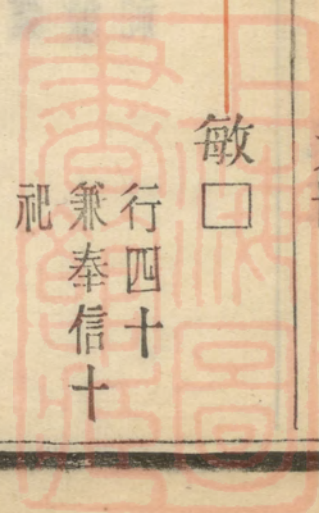 敏□
行四十
兼奉信十
祀